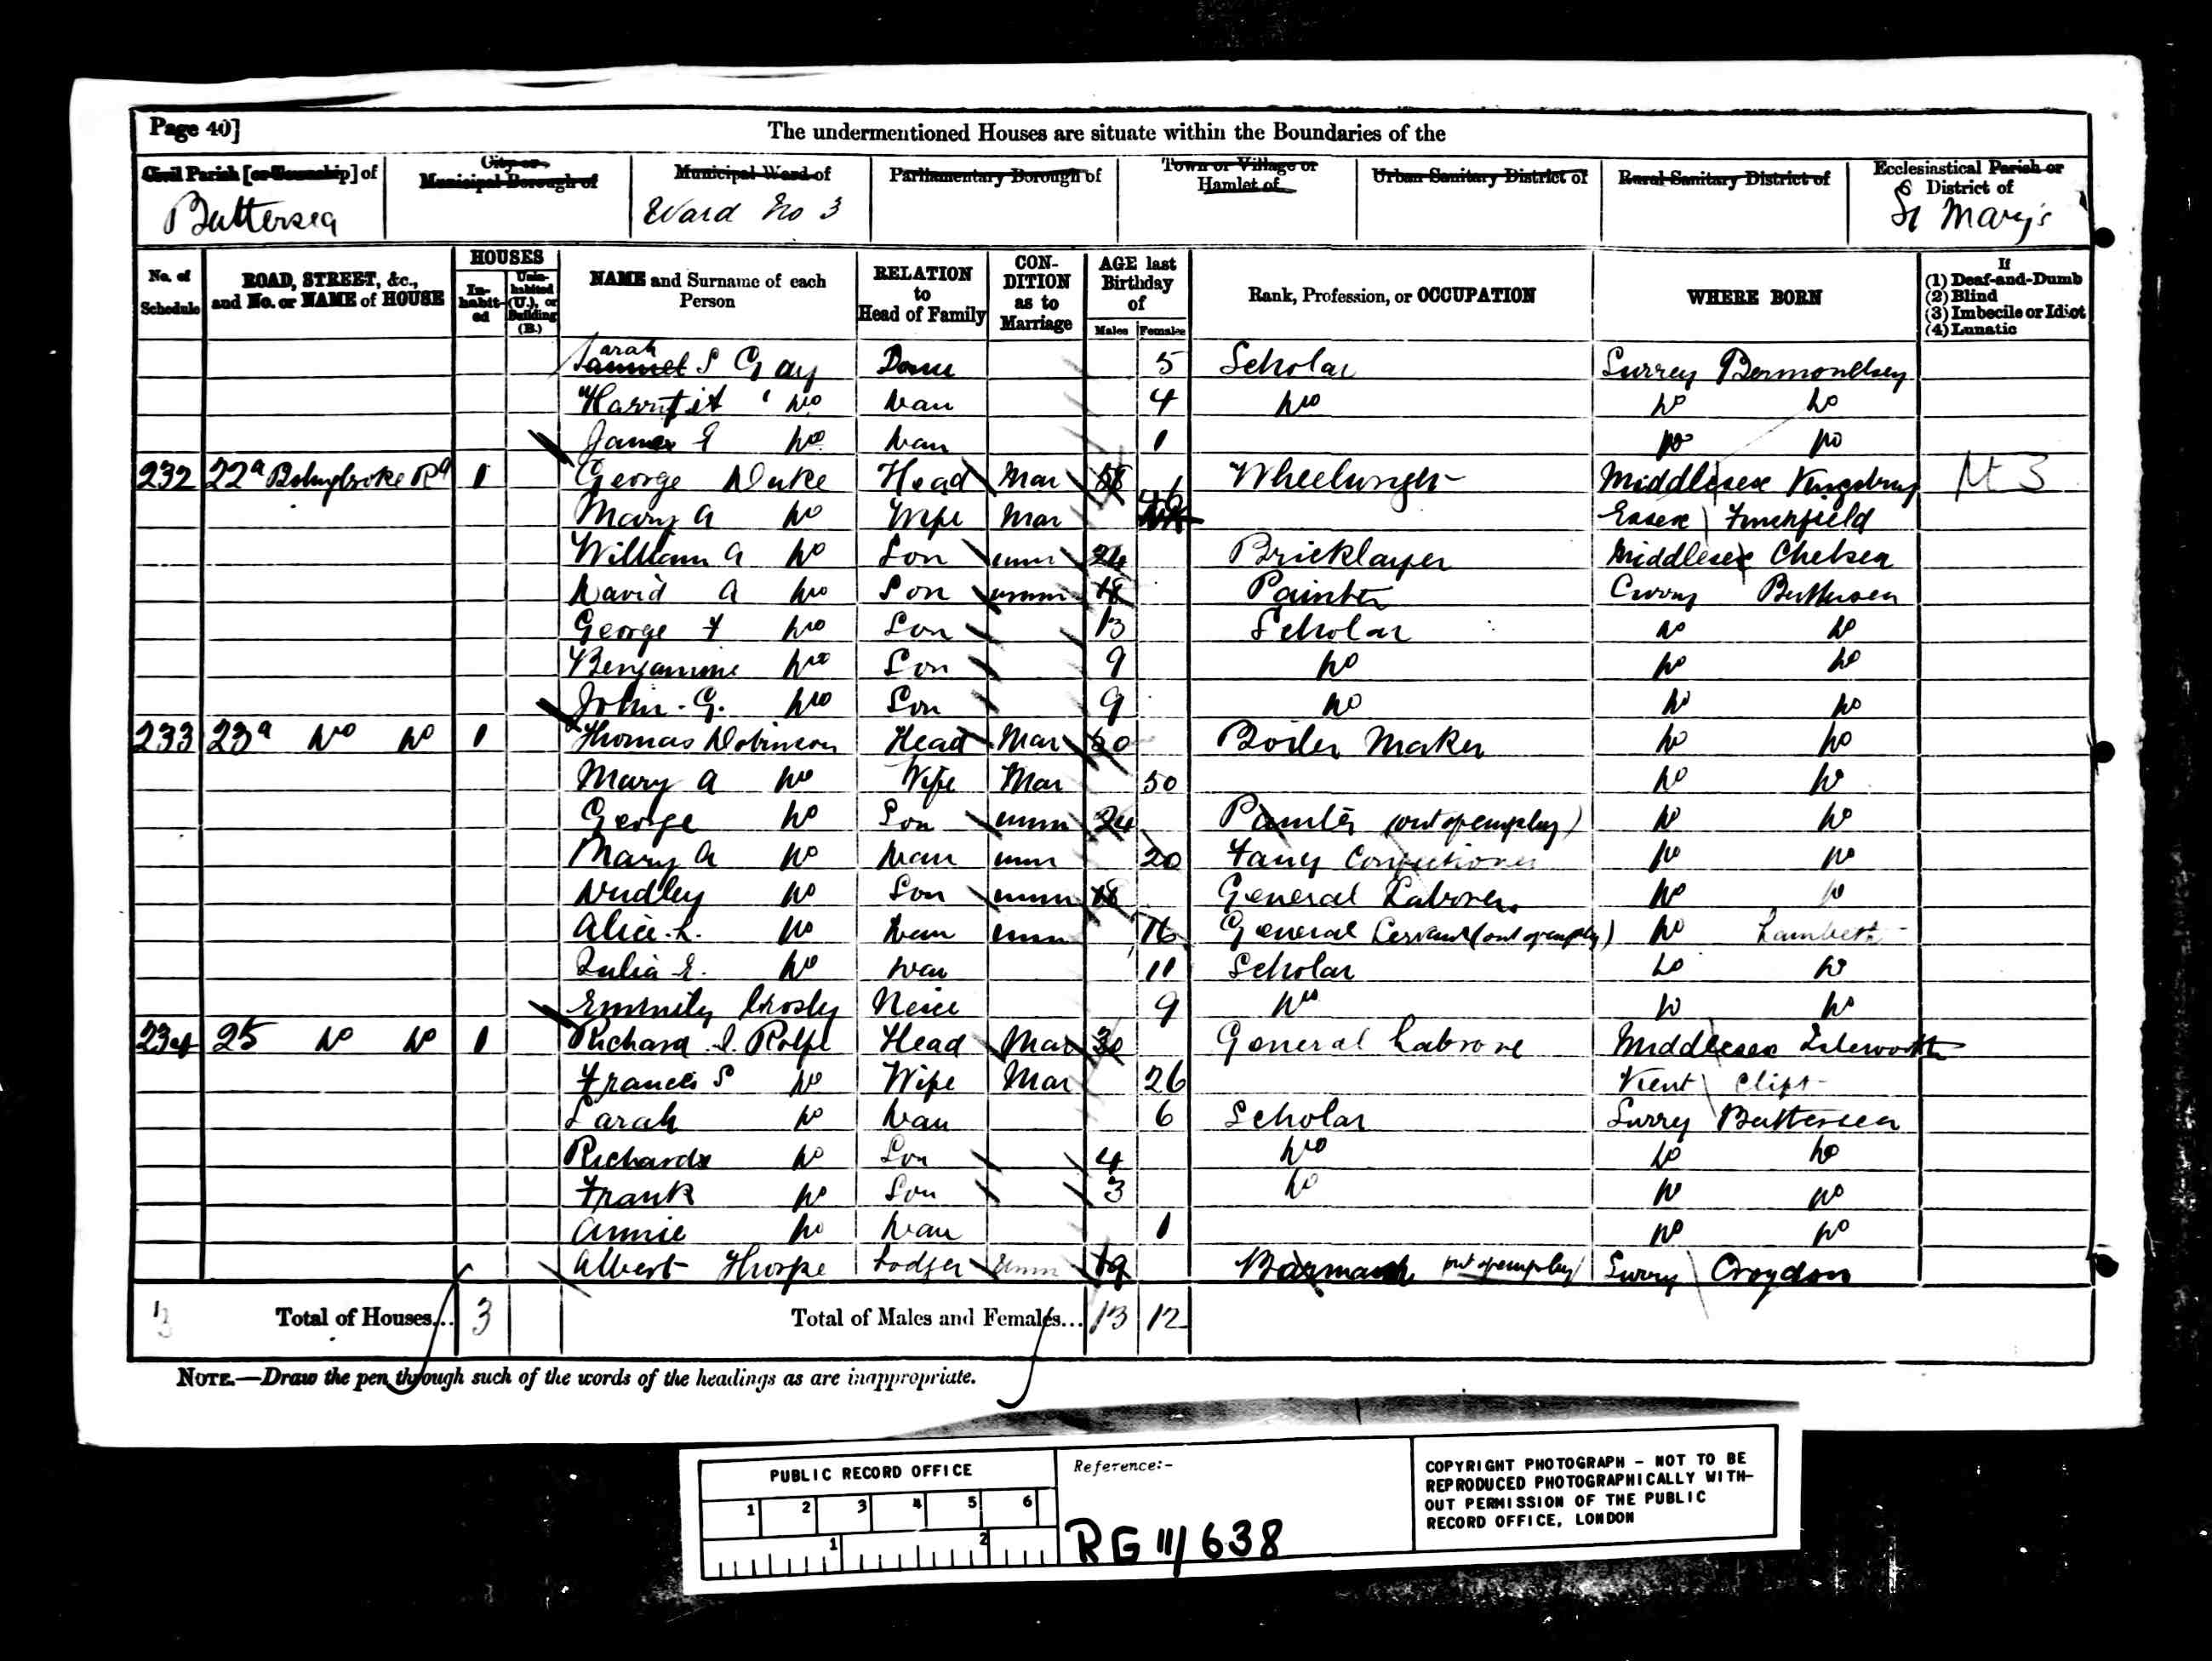 Page 40]
The undermentioned Houses are situate within the Boundaries of the
Civil Parish [or Township] of
City or Municipal Borough of
Municipal Ward of
Parliamentary Borough of
Town or Village or Hamlet of
Urban Sanitary District of
Rural Sanitary District of
Ecclesiastical Parish or District of
Battersea
Ward No 3
St Mary's
No. of Schedule
ROAD, STREET, &c., and No. or NAME of HOUSE
HOUSES
In-habit-ed
Unin-habited (U.), or Building (B.)
NAME and Surname of each Person
RELATION to Head of Family
CON-DITION as to Marriage
AGE last Birthday of
Males Females
Rank, Profession, or OCCUPATION
WHERE BORN
If
(1) Deaf-and-Dumb
(2) Blind
(3) Imbecile or Idiot
(4) Lunatic
Sarah S Gay 5 Scholar Surrey Bermondsey
Do Dau 4 Do Do Do
James E Do Dau 1 Do Do
232 22a Rd 1 George Duke Head Mar 58 Wheelwright Middlesex Kingsbury
Mary A Do Wife Mar 46 Essex Finchfield
William A Do Son unm 24 Bricklayer Middlesex Chelsea
David A Do Son unm 18 Painter Battersea
George F Do Son 13 Scholar Do Do
Benjamine Do Son 9 Do Do Do
John G. Do Son 9 Do Do Do
233 23a Do Do 1 Thomas Dobinson Head Mar 50 Boiler Maker Do Do
Mary A Do Wife Mar 50 Do Do
George Do Son unm 24 Painter (out of employ) Do Do
Mary A Do Dau unm 20 Fancy Confectioner Do Do
Dudley Do Son unm 18 General Labourer Do Do
Alice L. Do Dau unm 16 General Servant (out of employ) Do Lambeth
Julia E. Do Dau 11 Scholar Do Do
Emmily Crosby Neice 9 Do Do Do
234 25 Do Do 1 Richard Rolfe Head Mar 30 General Labrore Middlesex Isleworth
Francis S Do Wife Mar 26 Kent Clift
Sarah Do Dau 6 Scholar Surry Battersea
Richard Do Son 4 Do Do Do
Frank Do Son 3 Do Do Do
Annie Do Dau 1 Do Do
Albert Thorpe Lodger Unm 19 Barman out of employ Surry Croydon
3 Total of Houses... 3 Total of Males and Females... 13 12
NOTE.—Draw the pen through such of the words of the headings as are inappropriate.
PUBLIC RECORD OFFICE
1 2 3 4 5 6
1 2
Reference:-
RG 11/638
COPYRIGHT PHOTOGRAPH - NOT TO BE
REPRODUCED PHOTOGRAPHICALLY WITH-
OUT PERMISSION OF THE PUBLIC
RECORD OFFICE, LONDON